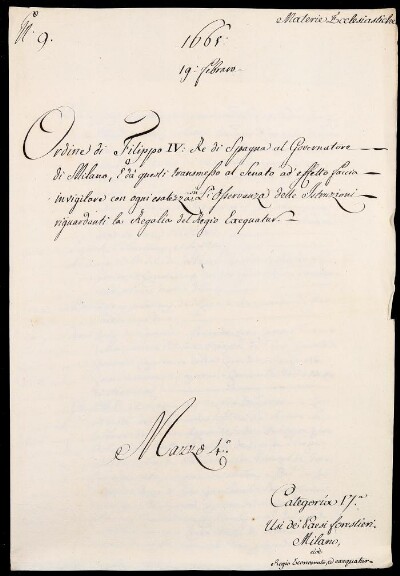 N.° 9.
Materie Ecclesiastiche
1665.
19. febraro
Ordine di Filippo IV: Re di Spagna al Governatore
di Milano, e da questi transmesso al Senato ad'effetto faccia
invigilare con ogni esatezza l'Osservanza delle Istruzioni
riguardanti la Regalia del Regio Exequatur.
Mazzo 4.°
Categoria 17.a
Usi de' Paesi forestieri.
Milano,
cioè
Regio Economato, ed exequatur